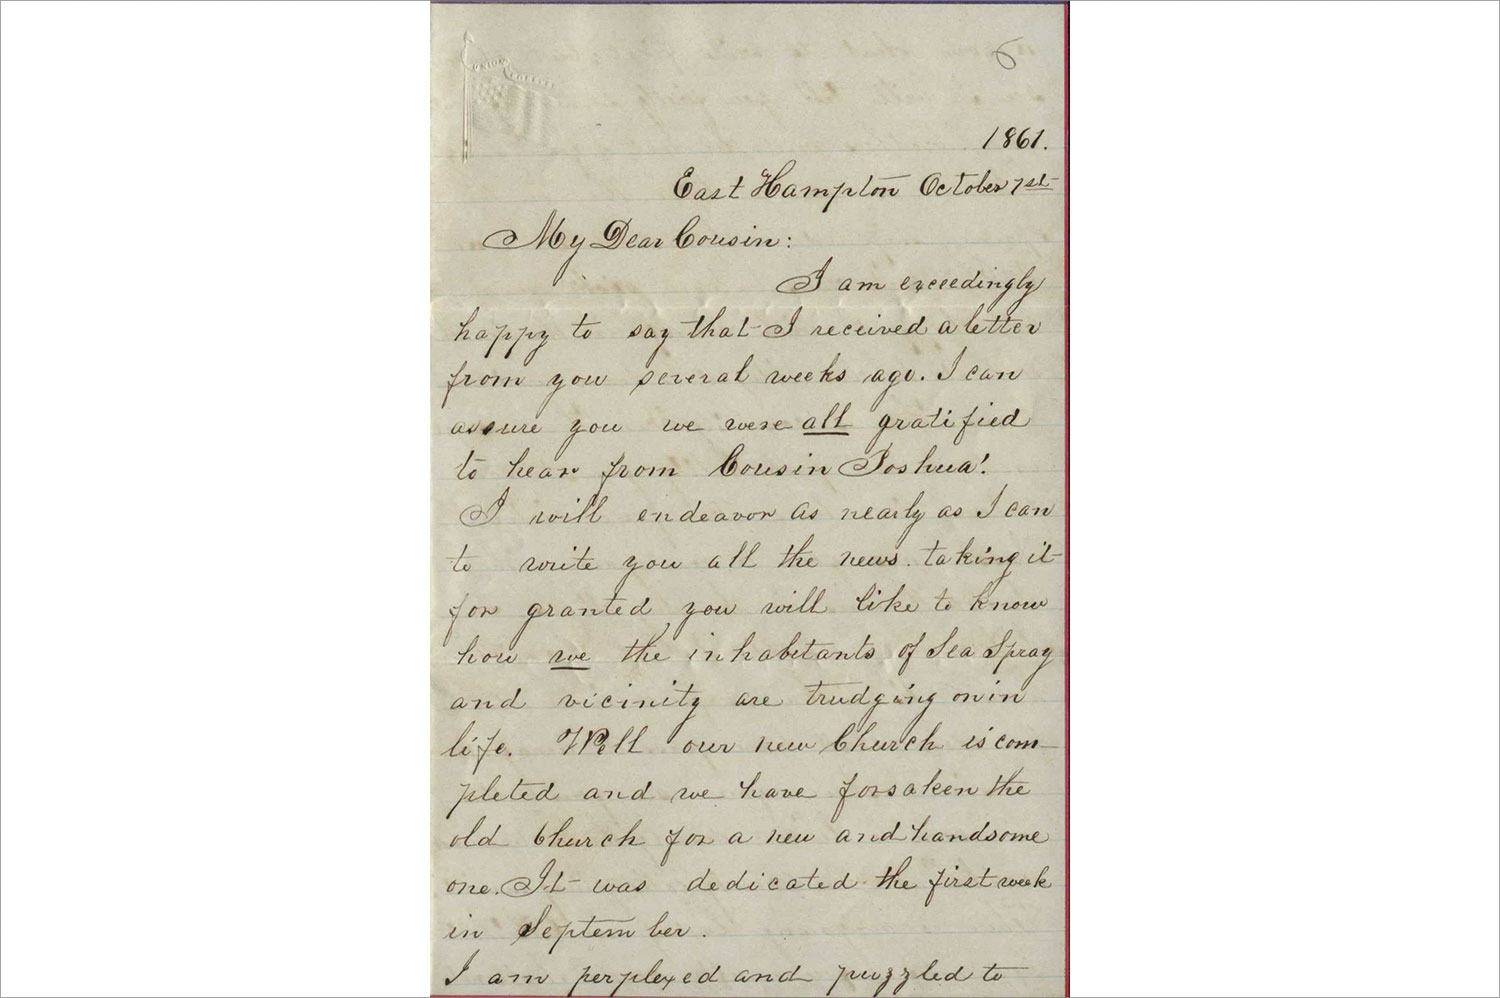 UNION FOREVER
6
1861.
East Hampton October 1st
My Dear Cousin:
I am exceedingly
happy to say that I received a letter
from you several weeks ago. I can
assure you we were all gratified
to hear from Cousin Joshua!
I will endeavor as nearly as I can
to write you all the news. taking it
for granted you will like to know
how we the inhabitants of Sea Spray
and vicinity are trudging on in
life. Well our new Church is com-
pleted and we have forsaken the
old Church for a new and handsome
one. It was dedicated the first week
in September.
I am perplexed and puzzled to